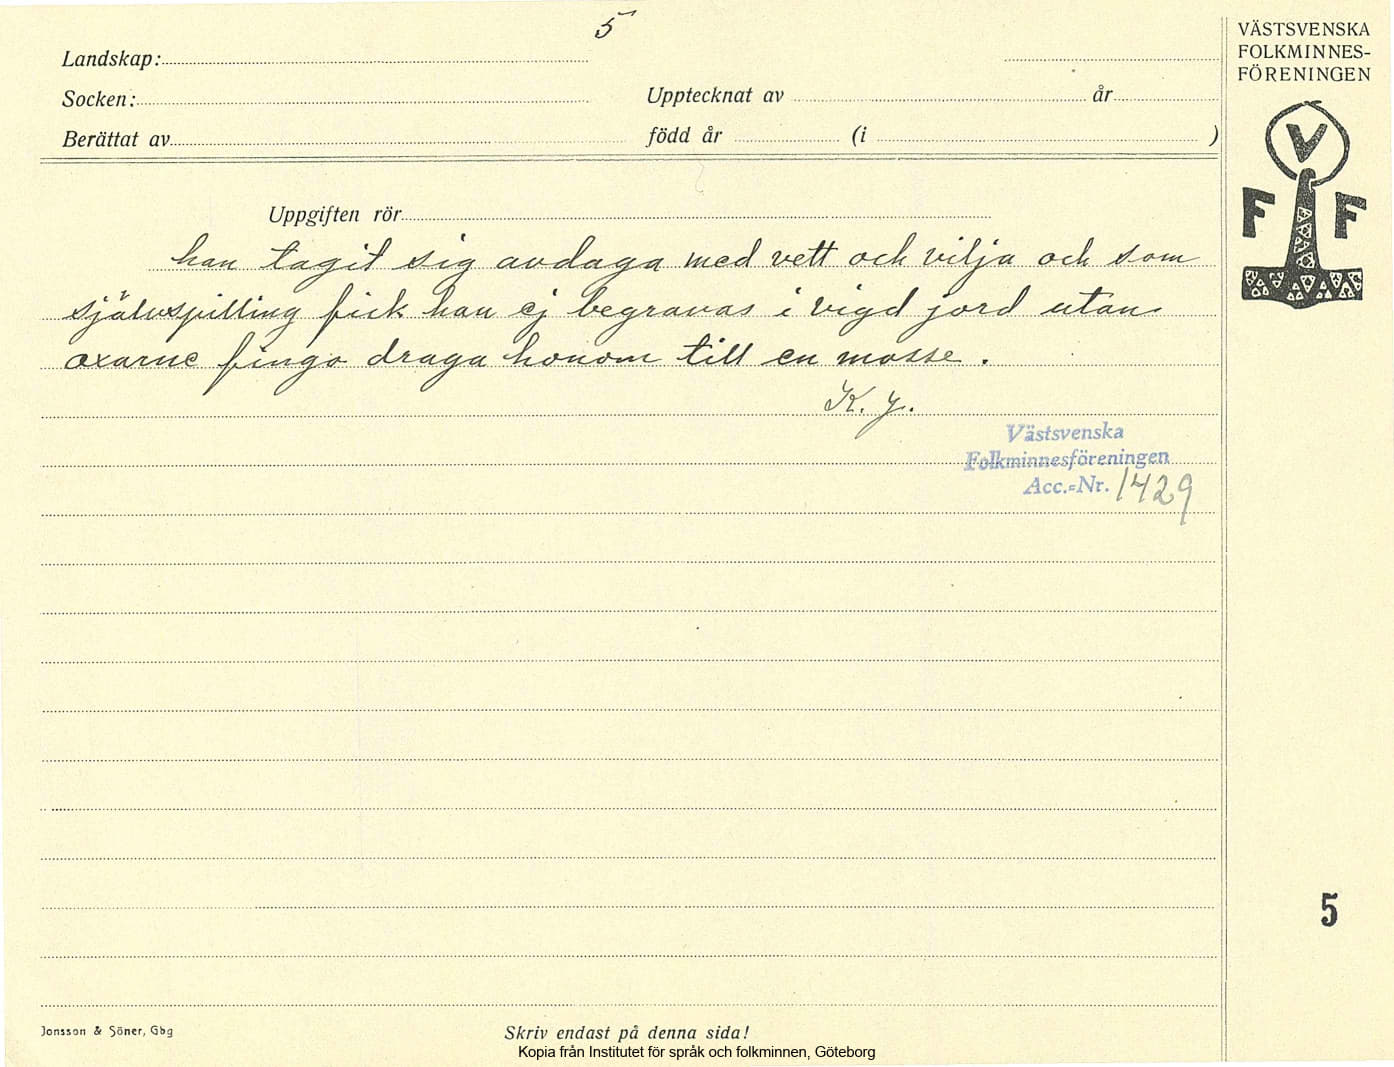 5
Landskap:
Socken:
Upptecknat av år
Berättat av
född år (i )
VÄSTSVENSKA
FOLKMINNES-
FÖRENINGEN
V
F F
Uppgiften rör
han tagit sig avdaga med vett och vilja och som
självspilling fick han ej begravas i vigd jord utan
oxarne fingo draga honom till en mosse.
K. J.
Västsvenska
Folkminnesföreningen
Acc.-Nr. 1429
5
Jonsson & Söner, Gbg
Skriv endast på denna sida!
Kopia från Institutet för språk och folkminnen, Göteborg